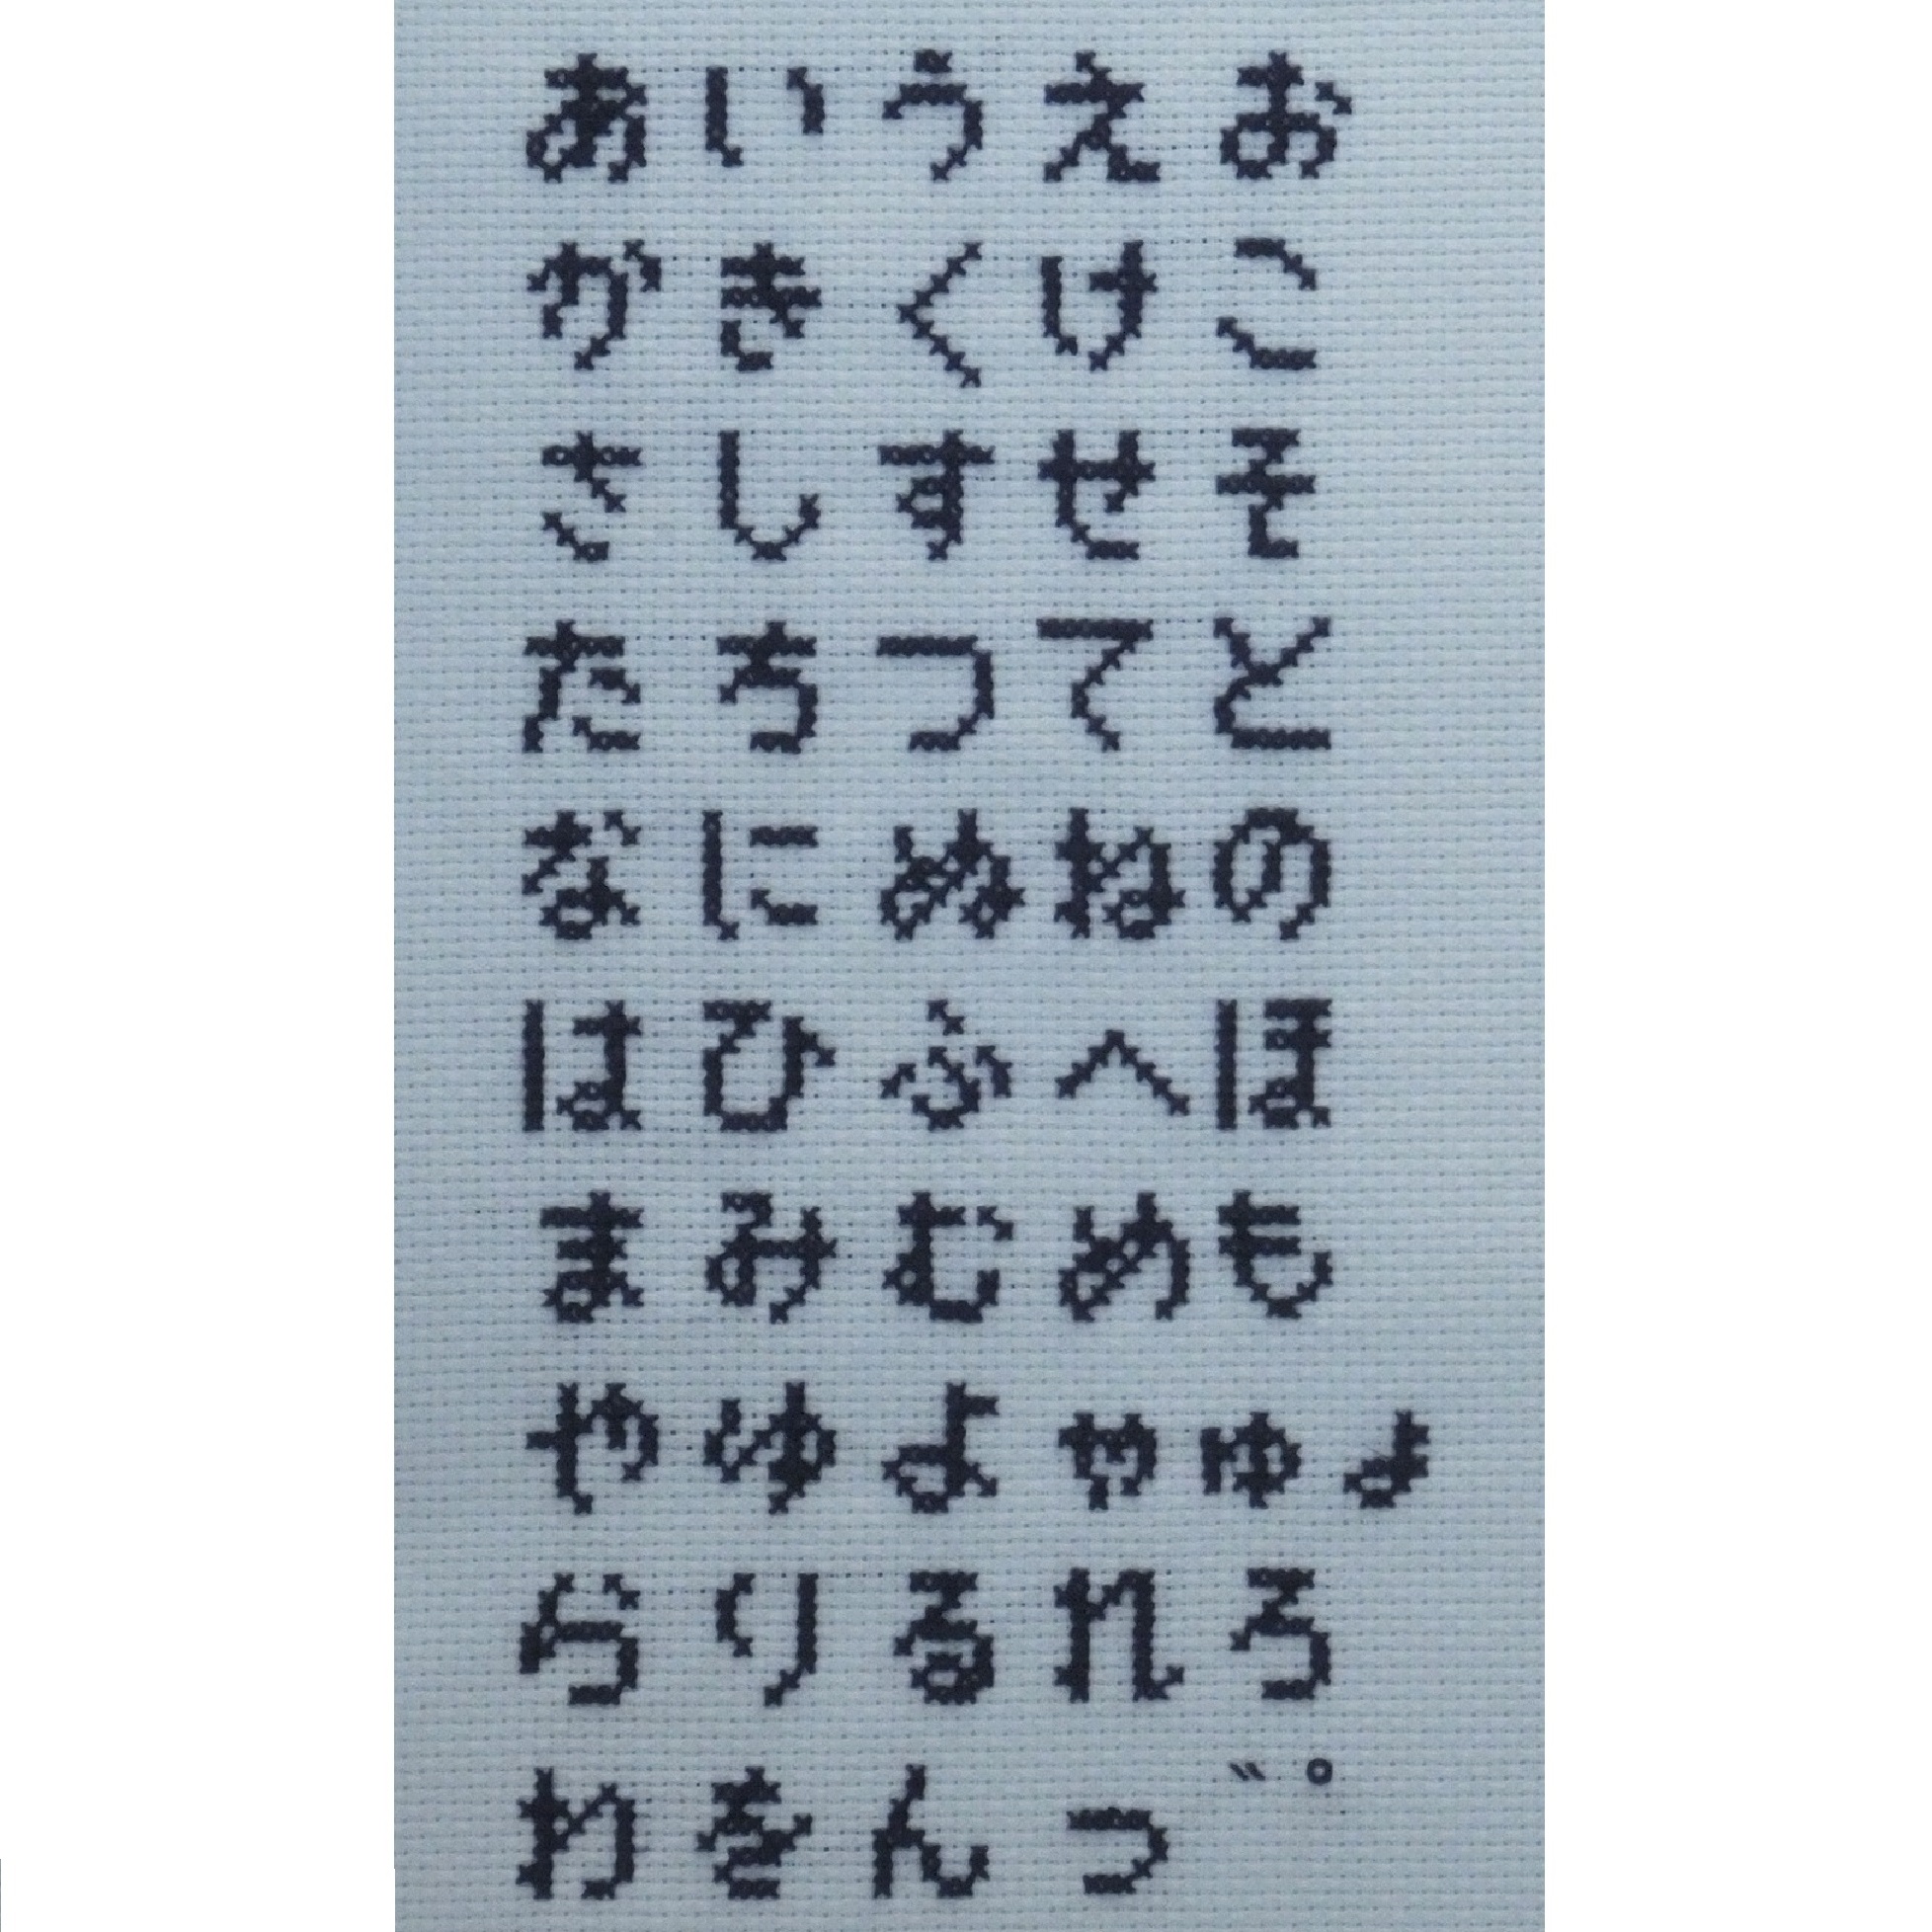 あいうえお
かきくけこ
さしすせそ
たちつてと
なにぬねの
はひふへほ
まみむめも
やゆよゃゅょ
らりるれろ
わをんっ゛゜